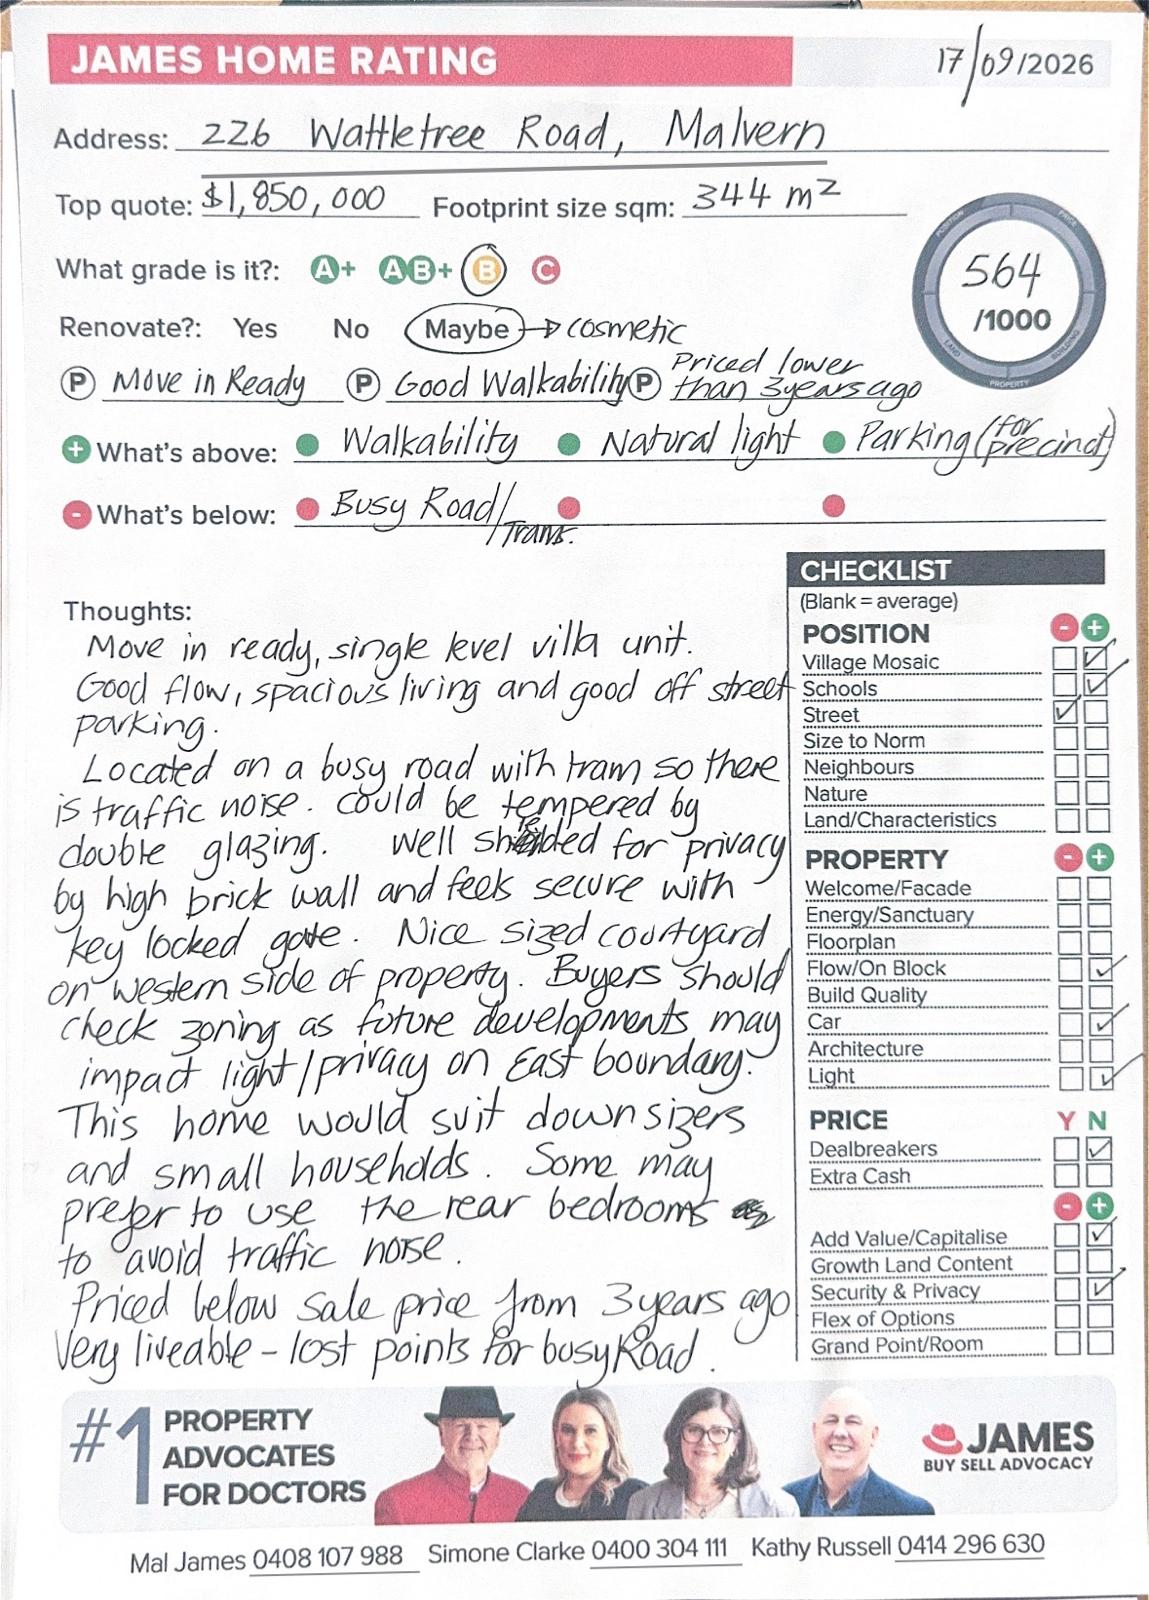 JAMES HOME RATING
17/09/2026
Address: 226 Wattletree Road, Malvern
Top quote: $1,850,000 Footprint size sqm: 344 m2
What grade is it?: A+ AB+ B C
POSITION PRICE
564
/1000
LAND BUILDING
PROPERTY
Renovate?: Yes No Maybe → cosmetic
P Move in Ready P Good Walkability P Priced lower
than 3 years ago
+ What's above: Walkability Natural light Parking (for
precinct)
- What's below: Busy Road/
Trams.
Thoughts:
Move in ready, single level villa unit.
Good flow, spacious living and good off street
parking.
Located on a busy road with tram so there
is traffic noise. could be tempered by
double glazing. Well shielded for privacy
by high brick wall and feels secure with
key locked gate. Nice sized courtyard
on western side of property. Buyers should
check zoning as future developments may
impact light/privacy on East boundary.
This home would suit downsizers
and small households. Some may
prefer to use the rear bedrooms
to avoid traffic noise.
Priced below sale price from 3 years ago
Very liveable – lost points for busy Road.
CHECKLIST
(Blank = average)
POSITION - +
Village Mosaic
Schools
Street
Size to Norm
Neighbours
Nature
Land/Characteristics
PROPERTY - +
Welcome/Facade
Energy/Sanctuary
Floorplan
Flow/On Block
Build Quality
Car
Architecture
Light
PRICE Y N
Dealbreakers
Extra Cash
- +
Add Value/Capitalise
Growth Land Content
Security & Privacy
Flex of Options
Grand Point/Room
#1 PROPERTY
ADVOCATES
FOR DOCTORS
JAMES
BUY SELL ADVOCACY
Mal James 0408 107 988 Simone Clarke 0400 304 111 Kathy Russell 0414 296 630